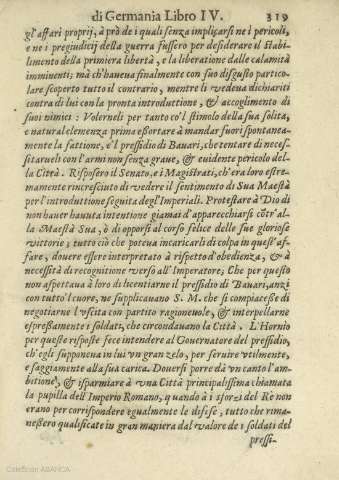 di Germania Libro IV. 319
gl'affari proprij, à prò de i quali senza implicarsi ne i pericoli,
e ne i pregiudicij della guerra fussero per desiderare il stabi-
limento della primiera libertà, e la liberatione dalle calamità
imminenti; mà ch'haueua finalmente con suo disgusto partico-
lare scoperto tutto il contrario, mentre li vedeua dichiariti
contra di lui con la pronta introduttione, & accoglimento di
suoi nimici: Volerneli per tanto co'l stimolo della sua solita,
e natural clemenza prima essortare à mandar fuori spontanea-
mente la fattione, e'l pressidio di Bauari, che tentare di neces-
sitarueli con l'armi non senza graue, & euidente pericolo del-
la Città. Risposero il Senato, e i Magistrati, ch'era loro estre-
mamente rincresciuto di vedere il sentimento di Sua Maestà
per l'introduttione seguita degl'Imperiali. Protestare à Dio di
non hauer hauuta intentione giamai d'apparecchiarsi côtr'al-
la Maestà Sua, ò di opporsi al corso felice delle sue gloriose
vittorie; tutto ciò che poteua incaricarli di colpa in quest'af-
fare, douere essere interpretato à rispetto d'obedienza, & à
necessità di recognitione verso all'Imperatore; Che per questo
non aspettaua à loro di licentiarne il pressidio di Bauari, anzi
con tutto'l cuore, ne supplicauano S. M. che si compiacesse di
negotiarne l'vscita con partito ragioneuole, & interpellarne
espressamente i soldati, che circondauano la Città. L'Hornio
per queste risposte fece intendere al Gouernatore del pressidio,
ch'egli supponeua in lui vn gran zelo, per seruire vtilmente,
e saggiamente alla sua carica. Douersi porre dà vn canto l'am-
bitione, & risparmiare à vna Città principalissima chiamata
la pupilla dell'Imperio Romano, quando à i sforzi del Re non
erano per corrispondere egualmente le difese, tutto che rima-
nessero qualificate in gran maniera dal valore de i soldati del
pressi-
ColeBicen ABANCA